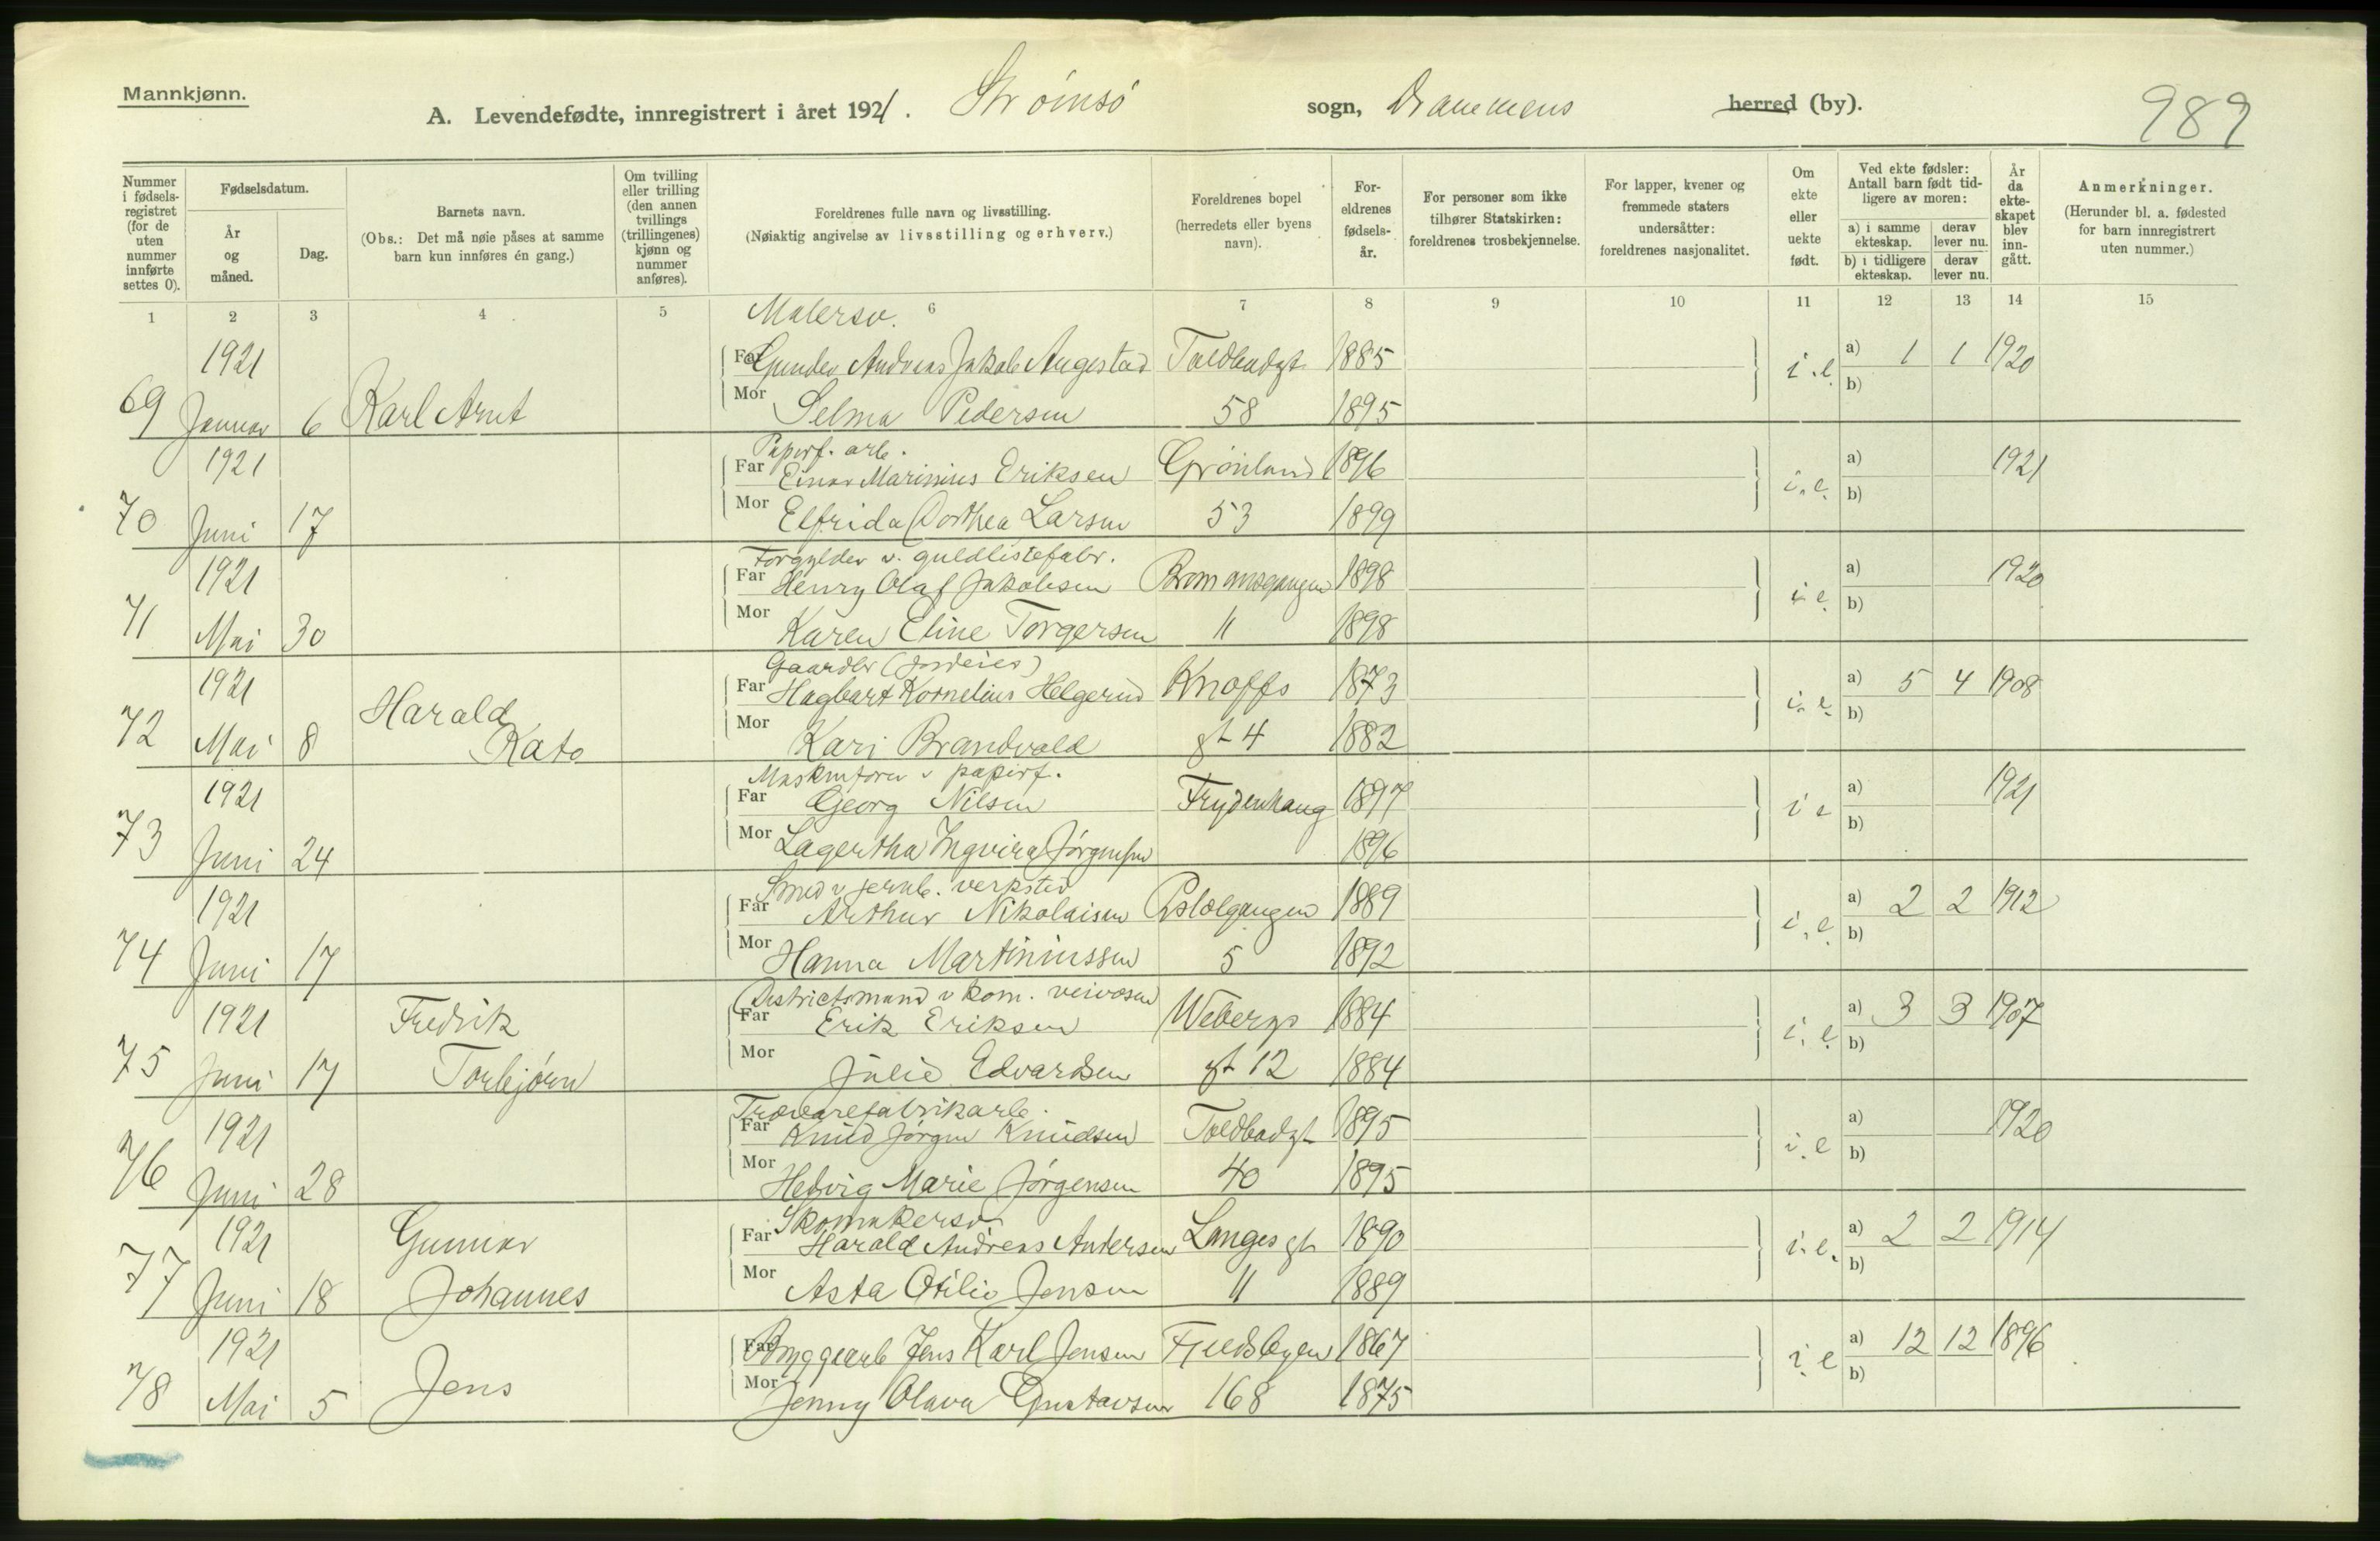 Mannkjønn.
A. Levendefødte, innregistrert i året 1921. Strømsø sogn, Drammens herred (by). 989
Nummer i fødselsregistret (for de uten nummer innførte settes 0).
Fødselsdatum.
År og måned.
Dag.
Barnets navn.
(Obs.: Det må nøie påses at samme barn kun innføres én gang.)
Om tvilling eller trilling (den annen tvillings (trillingenes) kjønn og nummer anføres).
Foreldrenes fulle navn og livsstilling.
(Nøiaktig angivelse av livsstilling og erhverv.)
Foreldrenes bopel (herredets eller byens navn).
Foreldrenes fødselsår.
For personer som ikke tilhører Statskirken: foreldrenes trosbekjennelse.
For lapper, kvener og fremmede staters undersåtter: foreldrenes nasjonalitet.
Om ekte eller uekte født.
Ved ekte fødsler: Antall barn født tidligere av moren:
a) i samme ekteskap. derav lever nu.
b) i tidligere ekteskap. derav lever nu.
År da ekteskapet blev inngått.
Anmerkninger.
(Herunder bl. a. fødested for barn innregistrert uten nummer.)
1 2 3 4 5 6 7 8 9 10 11 12 13 14 15
Malersv.
1921 Far Gunder Andreas Jakob Augestad Toldbodgt 1885 i.e. a) 1 1 1920
69 Januar 6 Karl Arnt Mor Selma Pedersen 58 1895 b)
Papirf. arb.
1921 Far Einar Marinius Eriksen Grønland 1896 i.e. a) 1921
70 Juni 17 Mor Elfrida Dorthea Larsen 53 1899 b)
Forgylder v. guldlistefabr.
1921 Far Henry Olaf Jakobsen 1898 i e. a) 1920
71 Mai 30 Mor Karen Eline Torgersen 11 1898 b)
Gaardbr (jordeier)
1921 Far Hagbart Kornelius Helgerud Knoffs 1873 i.e. a) 5 4 1908
72 Mai 8 Harald Kato Mor Kari Brandvold gt 4 1882 b)
Maskinfører v papirf.
1921 Far Georg Nilsen Frydenhaug 1897 i e a) 1921
73 Juni 24 Mor Lagertha Ingvira Jørgensen 1896 b)
Smed v jernb. verksted
1921 Far Arthur Nikolaisen 1889 i.e. a) 2 2 1912
74 Juni 17 Mor Hanna Martiniussen 5 1892 b)
Districtsmand v kom. veivæsen
1921 Fredrik Far Erik Eriksen Webergs 1884 i.e. a) 3 3 1907
75 Juni 17 Torbjørn Mor Julie Edvardsen gt 12 1884 b)
Trævarefabrikarb.
1921 Far Knud Jørgen Knudsen Toldbodgt 1895 i.e a) 1920
76 Juni 28 Mor Hedvig Marie Jørgensen 40 1895 b)
Skomakersv.
1921 Gunnar Far Harald Andreas Andersen Langes gt 1890 i.e. a) 2 2 1914
77 Juni 18 Johannes Mor Asta Otilie Jensen 11 1889 b)
1921 Far Bryggearb Jens Karl Jensen Fjeldsbyen 1867 i e a) 12 12 1896
78 Mai 5 Jens Mor Jenny Olava Gustavsen 168 1875 b)